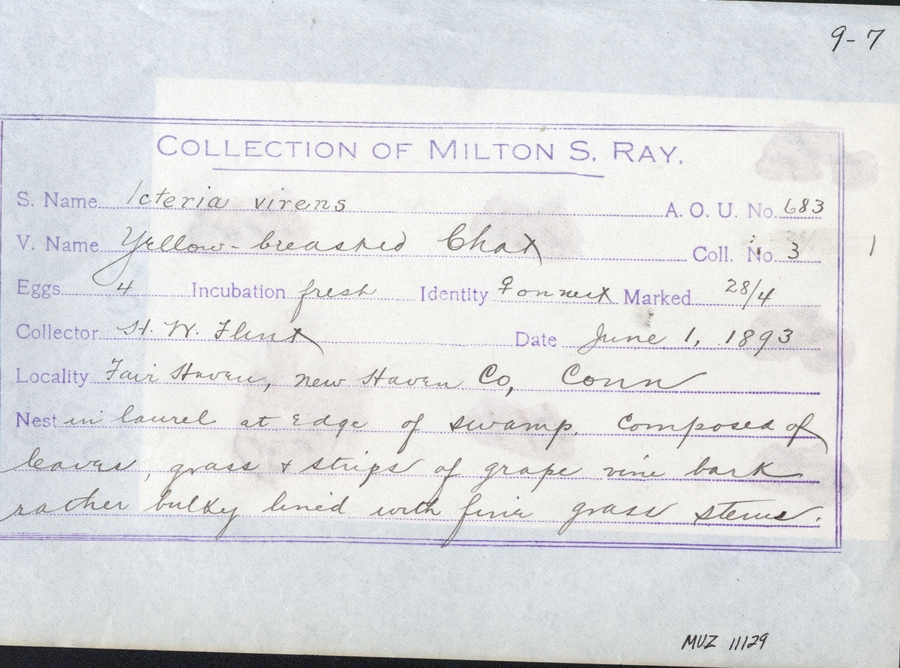 9-7
COLLECTION OF MILTON S. RAY.
S. Name Icteria virens A. O. U. No. 683
V. Name Yellow-breasted Chat Coll. No. 3 1
Eggs 4 Incubation fresh Identity ♀ on nest Marked 28/4
Collector H. W. Flint Date June 1, 1893
Locality Fair Haven, New Haven Co, Conn
Nest in laurel at edge of swamp. Composed of
leaves, grass & strips of grape vine bark
rather bulky lined with fine grass stems.
MVZ 11129